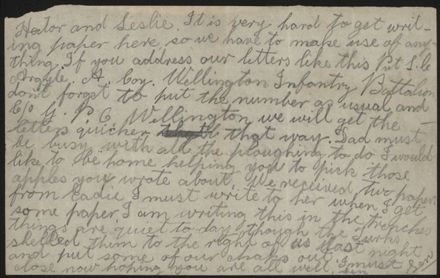 Hector and Leslie. It is very hard to get writ-
ing paper here, so we have to make use of any
thing. If you address our letters like this Pt L.C
Argyle, A Coy. Willington Infantry Battalion
don't forget to put the number as usual and
C/o G. P. O Willington we will get the
letters quicker that way. Dad must
be busy with all the ploughing to do I would
like to be home helping you to pick those
apples you wrote about. We received two papers
from Eadie I must write to her when I get
some paper. I am writing this in the trenches
things are quiet to day though the Turks
shelled them to the right of us last night
and put some of our chaps out. I must
close now hoping you are all well,